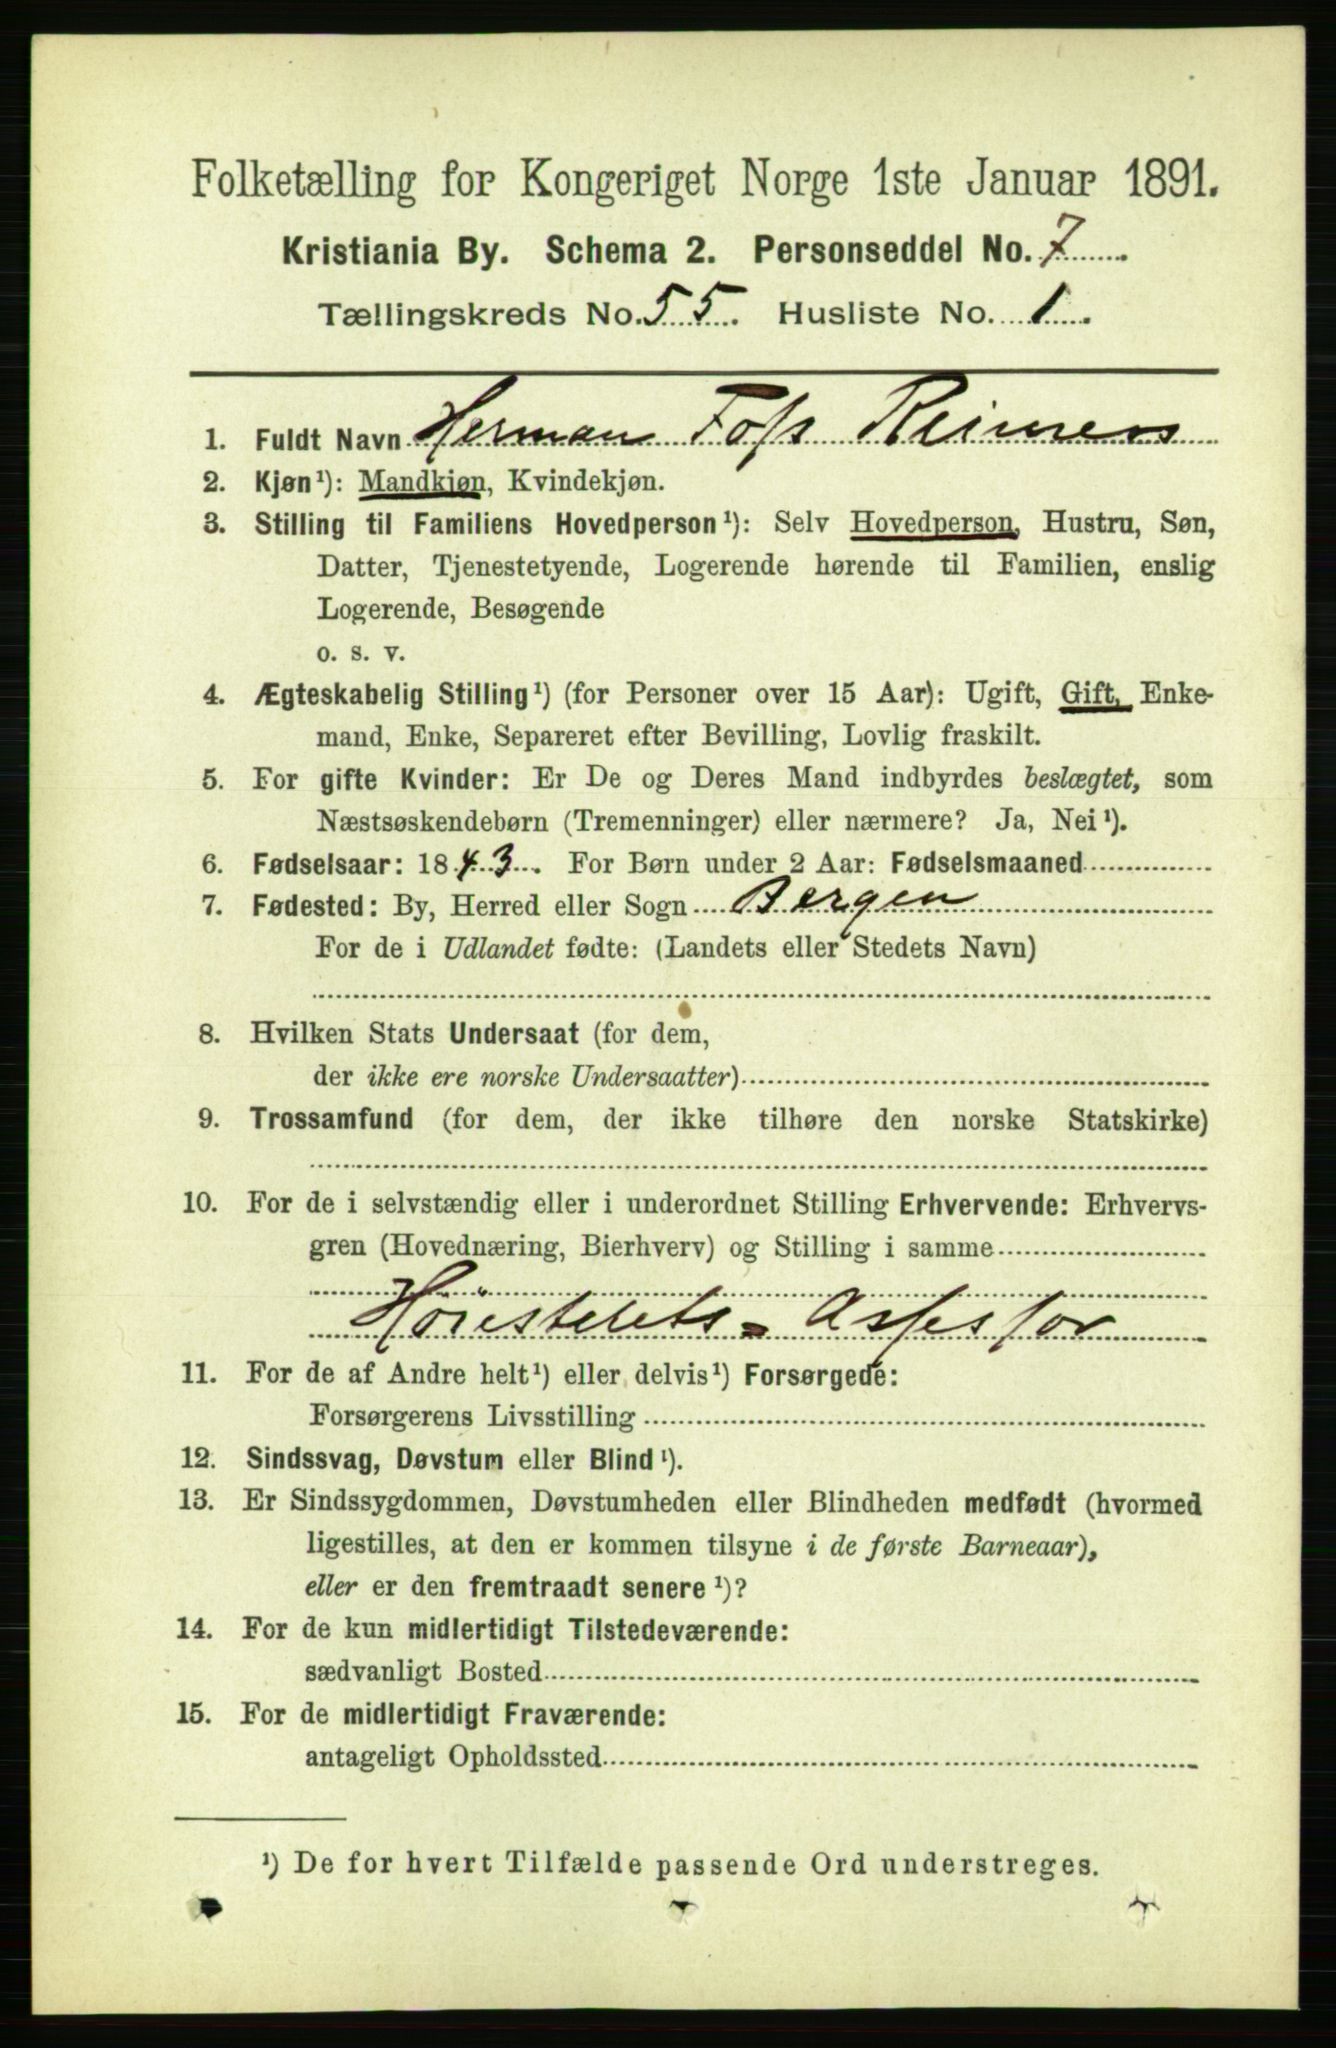 Folketælling for Kongeriget Norge 1ste Januar 1891.
Kristiania By. Schema 2. Personseddel No. 7
Tællingskreds No. 55. Husliste No. 1.
1. Fuldt Navn Herman Foss Reimers
2. Kjøn¹): Mandkjøn, Kvindekjøn.
3. Stilling til Familiens Hovedperson¹): Selv Hovedperson, Hustru, Søn,
Datter, Tjenestetyende, Logerende hørende til Familien, enslig
Logerende, Besøgende
o. s. v.
4. Ægteskabelig Stilling¹) (for Personer over 15 Aar): Ugift, Gift, Enke-
mand, Enke, Separeret efter Bevilling, Lovlig fraskilt.
5. For gifte Kvinder: Er De og Deres Mand indbyrdes beslægtet, som
Næstsøskendebørn (Tremenninger) eller nærmere? Ja, Nei¹).
6. Fødselsaar: 1843. For Børn under 2 Aar: Fødselsmaaned
7. Fødested: By, Herred eller Sogn Bergen
For de i Udlandet fødte: (Landets eller Stedets Navn)
8. Hvilken Stats Undersaat (for dem,
der ikke ere norske Undersaatter)
9. Trossamfund (for dem, der ikke tilhøre den norske Statskirke)
10. For de i selvstændig eller i underordnet Stilling Erhvervende: Erhvervs-
gren (Hovednæring, Bierhverv) og Stilling i samme
Høiesterets-Assessor
11. For de af Andre helt¹) eller delvis¹) Forsørgede:
Forsørgerens Livsstilling
12. Sindssvag, Døvstum eller Blind¹).
13. Er Sindssygdommen, Døvstumheden eller Blindheden medfødt (hvormed
ligestilles, at den er kommen tilsyne i de første Barneaar),
eller er den fremtraadt senere¹)?
14. For de kun midlertidigt Tilstedeværende:
sædvanligt Bosted
15. For de midlertidigt Fraværende:
antageligt Opholdssted
¹) De for hvert Tilfælde passende Ord understreges.